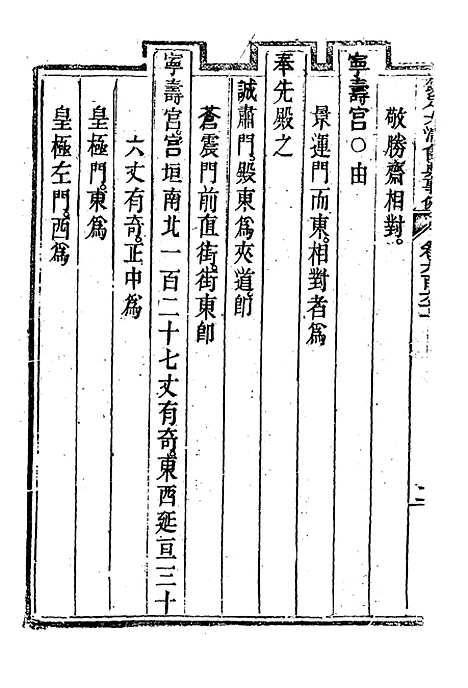 敬勝齋相對。
寧壽宮○由
景運門而東。相對者爲
奉先殿之
誠肅門。殿東爲夾道。卽
蒼震門前直街。街東卽
寧壽宮。宮垣南北一百二十七丈有奇。東西延亘三十
六丈有奇。正中爲
皇極門。東爲
皇極左門。西爲